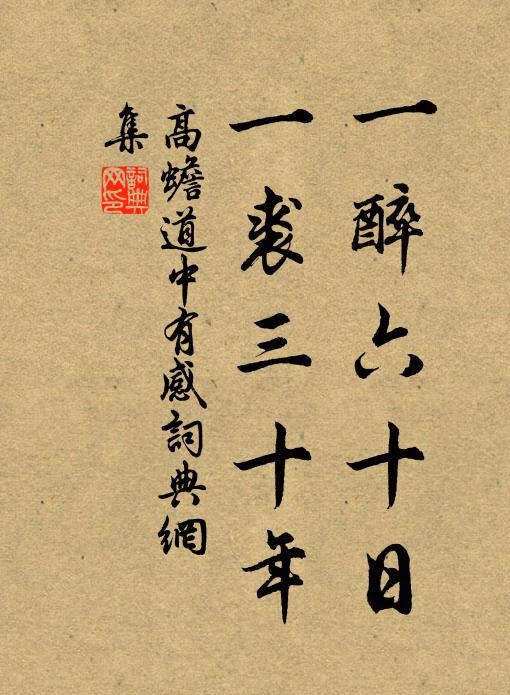 一醉六十日
一裘三十年
高蟾道中有感詞典網
集
詞典
网印